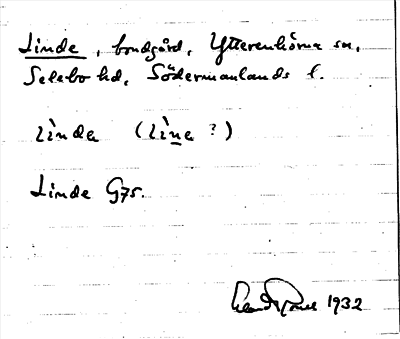 Linde, bondgård, Ytterenhörna sn,
Selebo hd, Södermanlands l.
lìndα (lìnα ?)
Linde G75.
1932